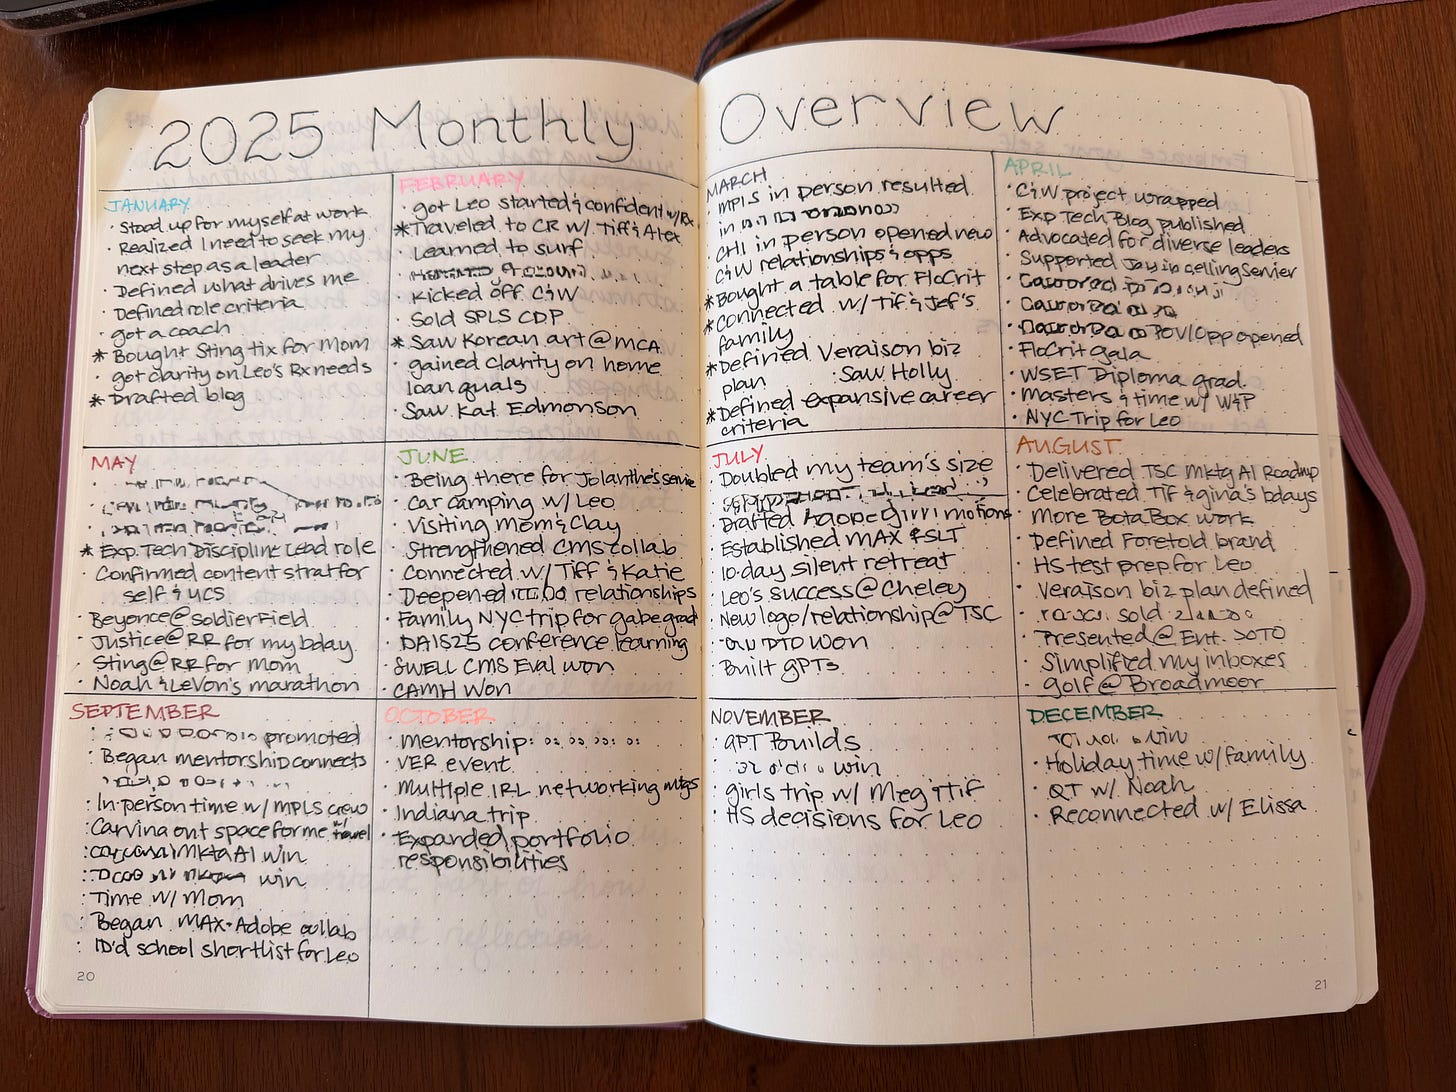 2025 Monthly Overview
JANUARY
· Stood up for myself at work
· Realized I need to seek my
next step as a leader
· Defined what drives me
· Defined role criteria
· got a coach
* Bought Sting tix for Mom
· got clarity on Leo's Rx needs
* Drafted blog
FEBRUARY
· got Leo started & confident w/ Rx
* Traveled to CR w/ Tiff & Alex
· Learned to surf
· Kicked off C&W
· Sold SPLS CDP
* Saw Korean art @ MCA
· gained clarity on home
loan quals
· Saw Kat Edmonson
MARCH
· MPLS in person resulted
in
· CHI in person opened new
C&W relationships & opps
* Bought a table for FloCrit
* Connected w/ Tif & Jef's
family
* Defined Veraison biz
plan · Saw Holly
* Defined expansive career
criteria
APRIL
· C&W project wrapped
· Exp Tech Blog published
· Advocated for diverse leaders
· Supported Jay in selling Servier
· POV/Opp opened
· FloCrit gala
· WSET Diploma grad.
· Masters & time w/ W&P
· NYC Trip for Leo
MAY
* Exp. Tech Discipline Lead role
· Confirmed content strat for
self & UCS
· Beyonce @ Soldier Field
· Justice @ RR for my bday
· Sting @ RR for Mom
· Noah & LeVon's marathon
JUNE
· Being there for Jolanthe's service
· Car camping w/ Leo
· Visiting Mom & Clay
· Strengthened CMS collab
· Connected w/ Tiff & Katie
· Deepened relationships
· Family NYC trip for gabe grad
· DAIS25 conference learning
· SWELL CMS Eval won
· CAMH Won
JULY
· Doubled my team's size
· Drafted motions
· Established MAX & SLT
· 10-day silent retreat
· Leo's success @ Cheley
· New logo/relationship @ TSC
· won
· Built gPTs
AUGUST
· Delivered TSC Mktg AI Roadmap
· Celebrated Tif & gina's bdays
· More BotaBox work
· Defined Foretold brand
· HS test prep for Leo
· Veraison biz plan defined
· sold
· Presented @ Ent. SOTO
· Simplified my inboxes
· Golf @ Broadmoor
SEPTEMBER
· promoted
· Began mentorship connects
· In-person time w/ MPLS crew
· Carving out space for me w/ travel
· Mktg AI win
· win
· Time w/ Mom
· Began MAX-Adobe collab
· ID'd school shortlist for Leo
OCTOBER
· Mentorship:
· VER event
· Multiple IRL networking mtgs
· Indiana trip
· Expanded portfolio
responsibilities
NOVEMBER
· gPT Builds
· win
· girls trip w/ Meg & Tif
· HS decisions for Leo
DECEMBER
· win
· Holiday time w/ family
· QT w/ Noah
· Reconnected w/ Elissa
20
21